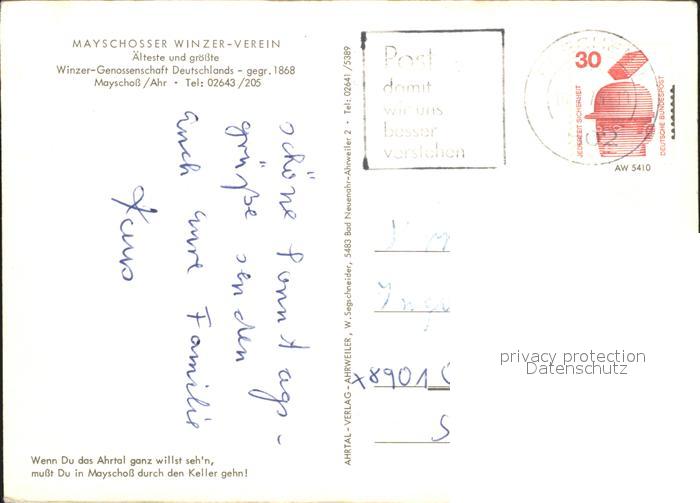 MAYSCHOSSER WINZER-VEREIN
Älteste und größte
Winzer-Genossenschaft Deutschlands - gegr. 1868
Mayschoß/Ahr • Tel: 02643/205
schöne Sonntags-
grüße senden
Euch Eure Familie
Wenn Du das Ahrtal ganz willst seh'n,
mußt Du in Mayschoß durch den Keller gehn!
AHRTAL-VERLAG-AHRWEILER, W. Segschneider, 5483 Bad Neuenahr-Ahrweiler 2 • Tel: 02641/5389
Post
damit
wir uns
besser
verstehen
30
JEDERZEIT SICHERHEIT
DEUTSCHE BUNDESPOST
AW 5410
x8901
privacy protection
Datenschutz